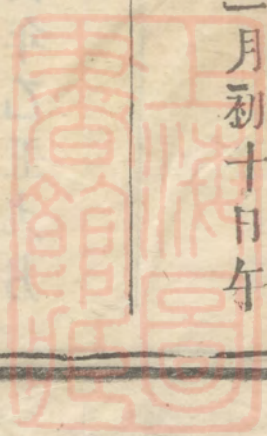 一月初十日午
上海圖
書館藏